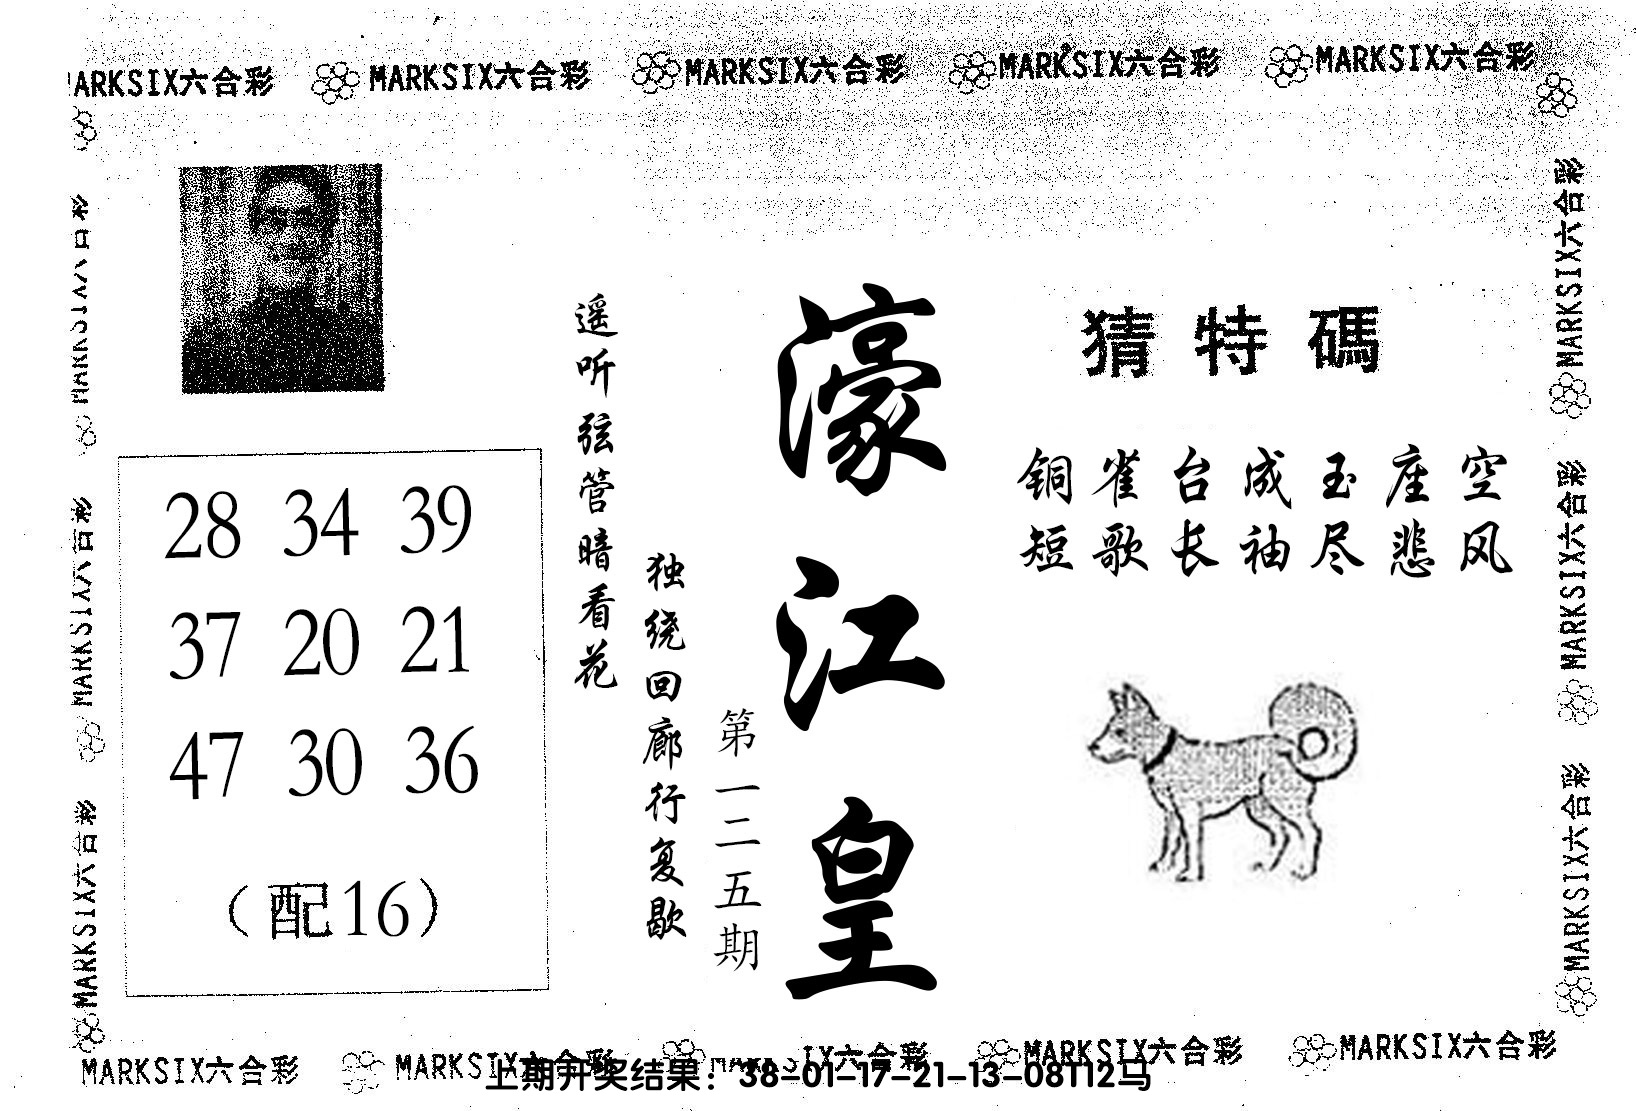 MARKSIX六合彩 MARKSIX六合彩 MARKSIX六合彩 MARKSIX六合彩 MARKSIX六合彩
MARKSIX六合彩
MARKSIX六合彩
MARKSIX六合彩
28 34 39
37 20 21
47 30 36
（配16）
遥听弦管暗看花
独绕回廊行复歇
第一二五期
濠江皇
猜特碼
铜雀台成玉座空
短歌长袖尽悲风
MARKSIX六合彩
MARKSIX六合彩
MARKSIX六合彩
MARKSIX六合彩 MARKSIX六合彩 MARKSIX六合彩 MARKSIX六合彩 MARKSIX六合彩
上期开奖结果：38-01-17-21-13-08T12马